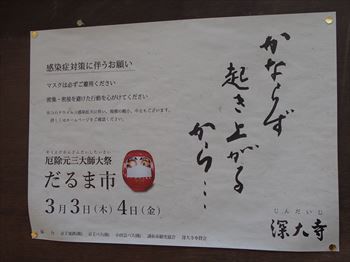 かならず
起き上がる
から…
感染症対策に伴うお願い
マスクは必ずご着用ください
密集・密接を避けた行動を心がけてください
厄除元三大師大祭
だるま市
3月3日(木)4日(金)
じんだいじ
深大寺